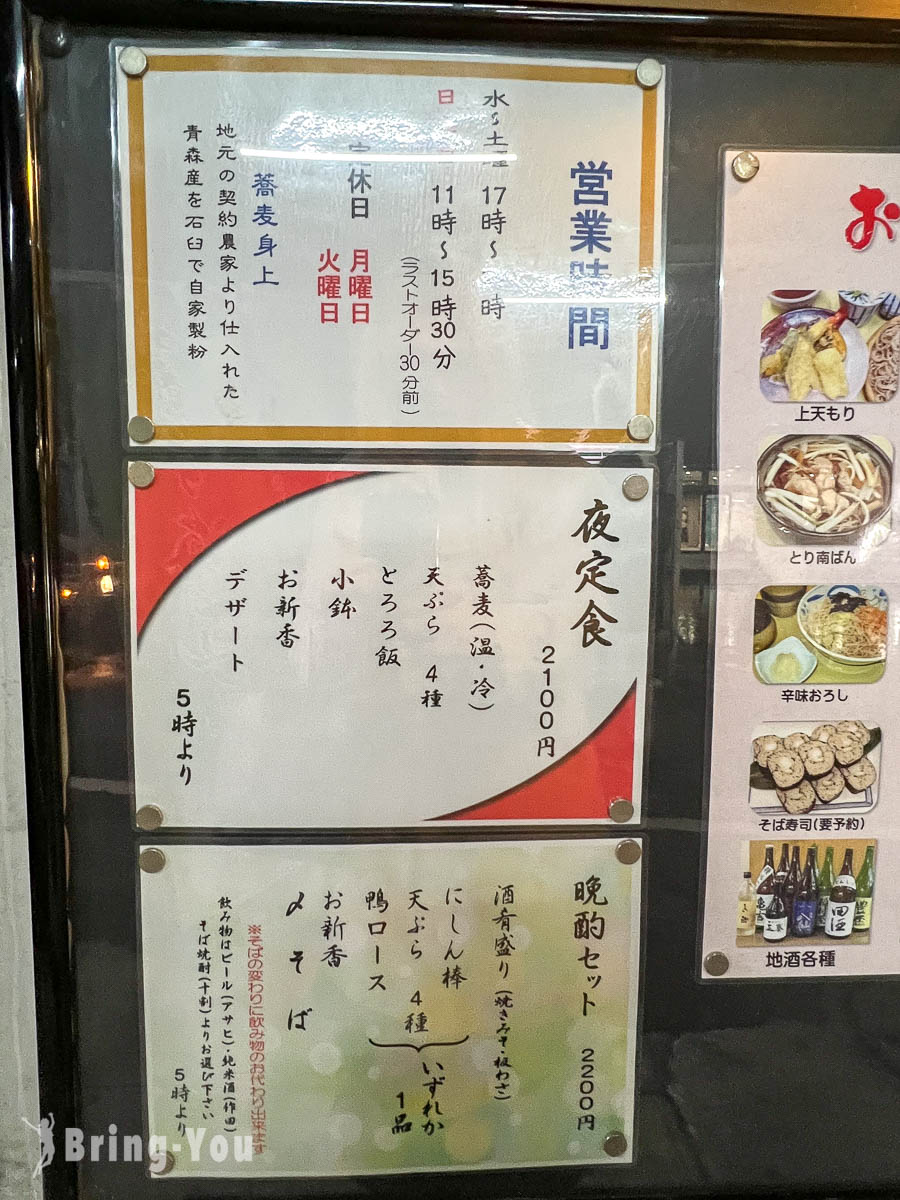 営業時間
水～土曜 17時～ 時
日 11時～15時30分
(ラストオーダー30分前)
定休日 月曜日
火曜日
蕎麦身上
地元の契約農家より仕入れた
青森産を石臼で自家製粉
夜定食
2100円
蕎麦(温・冷)
天ぷら 4種
とろろ飯
小鉢
お新香
デザート
5時より
晩酌セット 2200円
酒肴盛り(焼きみそ・板わさ)
にしん棒
天ぷら 4種
鴨ロース
いずれか
1品
お新香
〆そば
※そばの変わりに飲み物のお代わり出来ます
飲み物はビール(アサヒ)・純米酒(作田)
そば焼酎(十割)よりお選び下さい
5時より
お
上天もり
とり南ばん
辛味おろし
そば寿司(要予約)
田酒
地酒各種
Bring-You